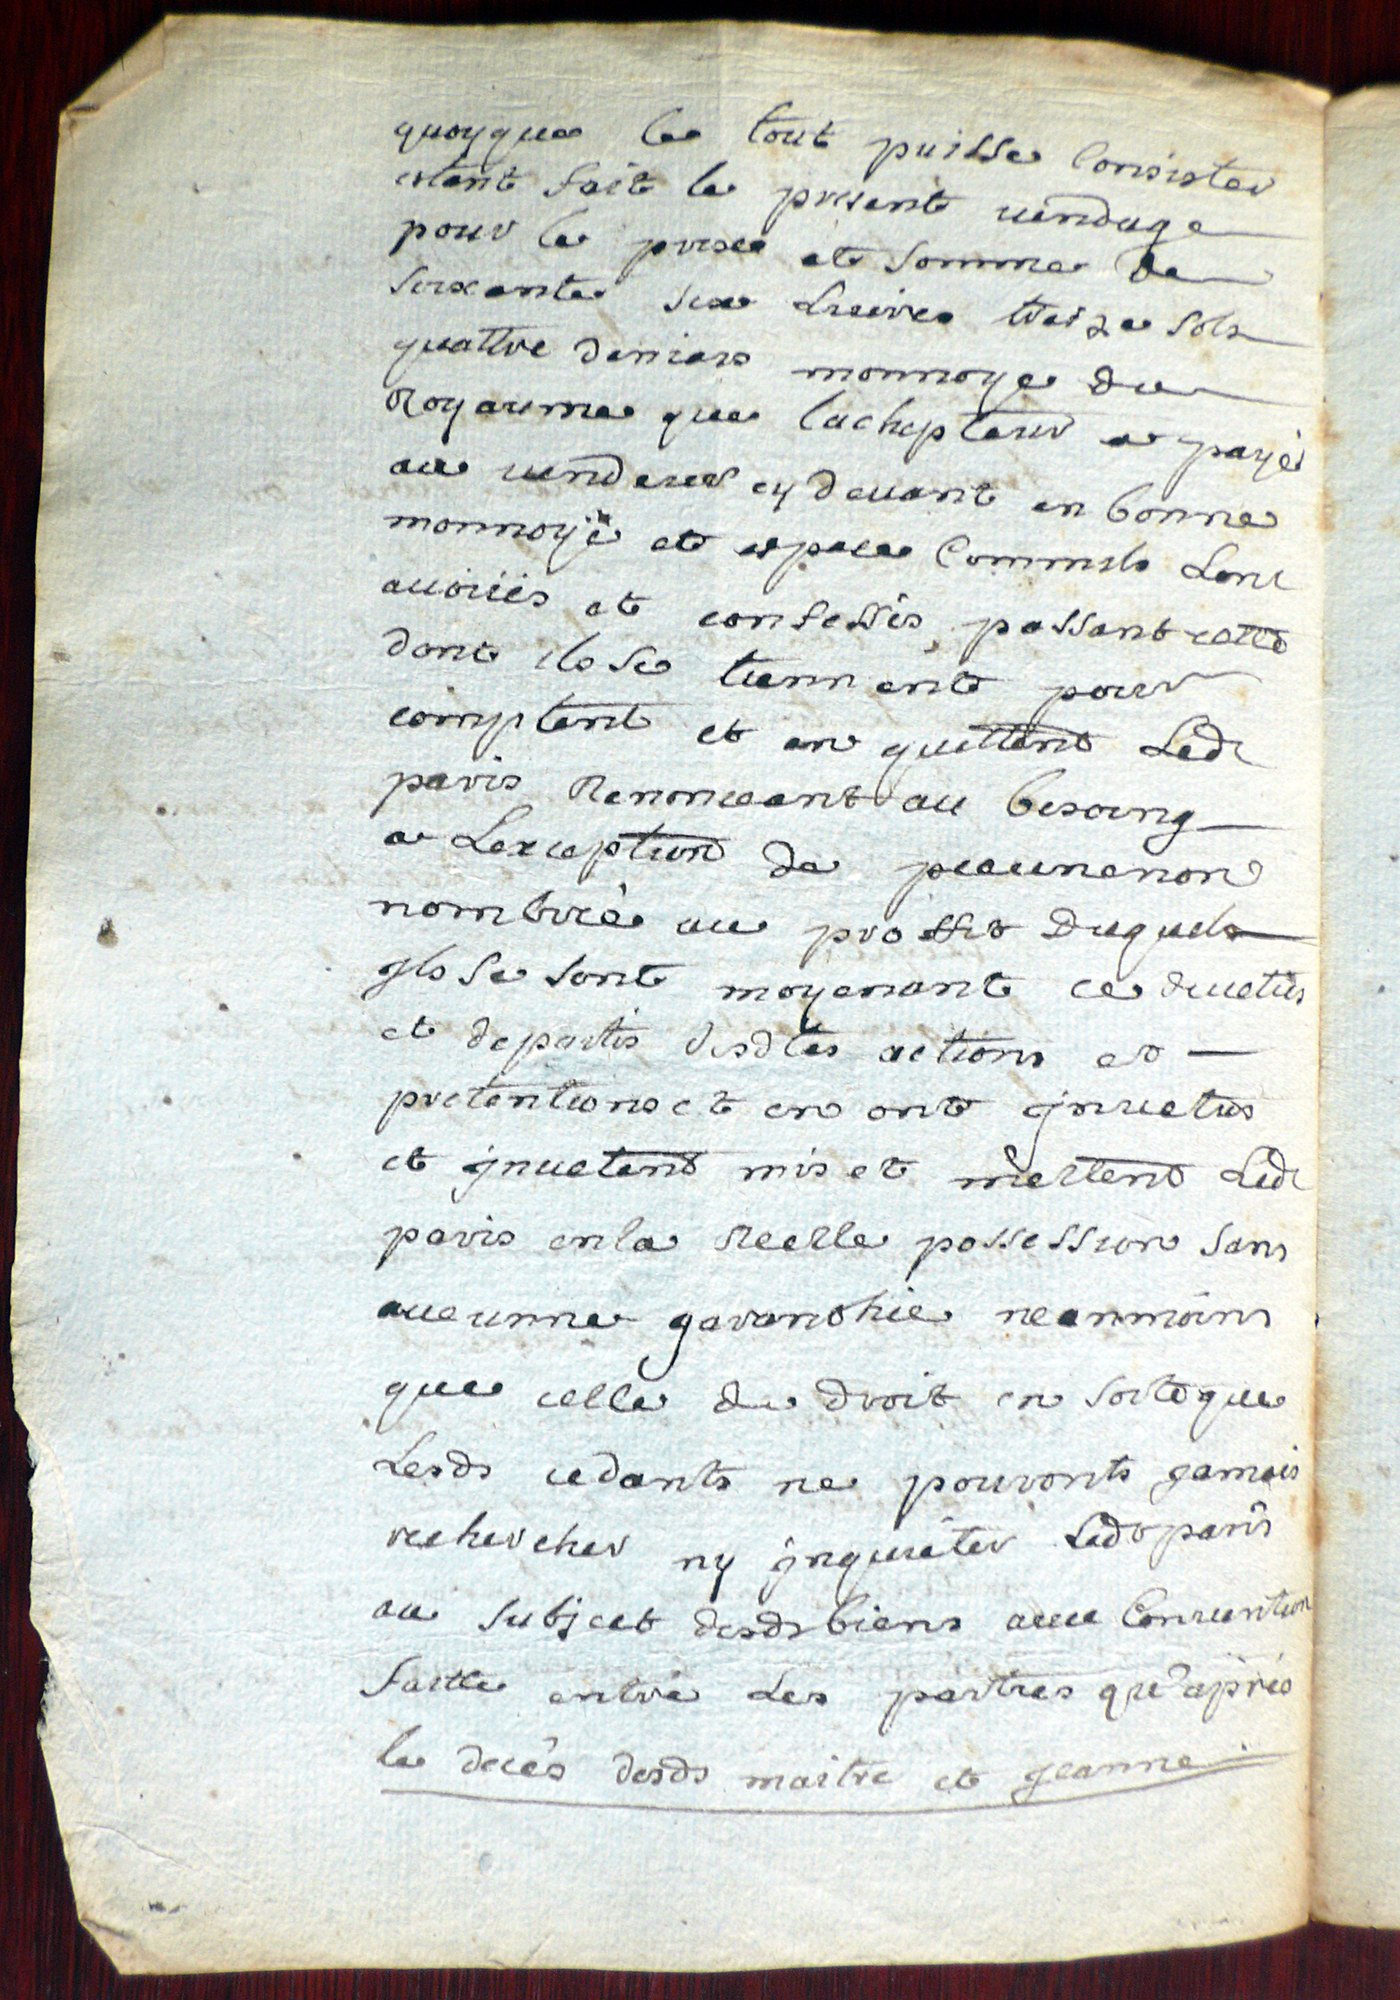 quoyque le tout puisse Consister
estant fait le present vendage
pour le prix et somme de
soixante six Livres treize sols
quattre deniers monnoye du
Royaume que lachepteur a payé
au vendeur cy devant en bonne
monnoye et espece Comm ils Lont
avoüés et confessés passant cette
dont ils se tiennent pour
comptent et en quittent Ledt
paris Renonceant au besoing
a Lexception de pecune non
nombrée au proffit Duquels
Jls se sont moyenant ce devetus
et departis desdtes actions et
pretentions et en ont Jnvetus
et Jnvetent mis et mettent Ledt
paris en la Reelle possession sans
aucunne garanthie neanmoins
que celle de droit en sorte que
Lesds cedants ne pouront jamais
rechercher ny Jnquieter Ledt paris
au subject desds biens avec Convention
faitte entre Les parties qu'apres
le decés desds maitre et Jeanne